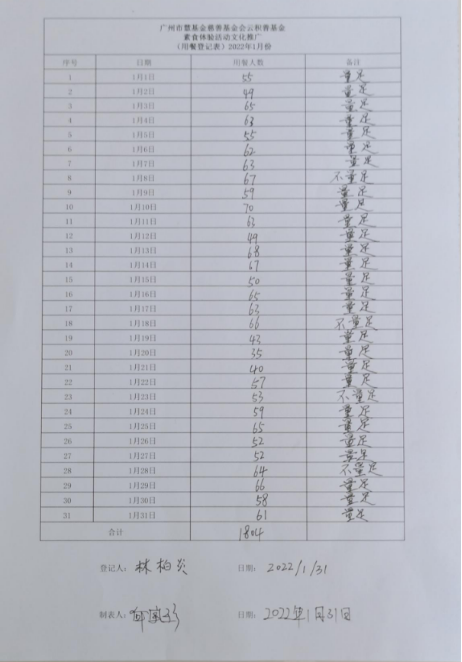 广州市慧基金慈善基金会云积善基金
素食体验活动文化推广
（用餐登记表）2022年1月份
序号 日期 用餐人数 备注
1 1月1日 55 量足
2 1月2日 49 量足
3 1月3日 65 量足
4 1月4日 63 量足
5 1月5日 55 量足
6 1月6日 62 量足
7 1月7日 63 量足
8 1月8日 67 不量足
9 1月9日 59 量足
10 1月10日 70 量足
11 1月11日 63 量足
12 1月12日 49 量足
13 1月13日 68 量足
14 1月14日 67 量足
15 1月15日 50 量足
16 1月16日 65 量足
17 1月17日 63 量足
18 1月18日 66 不量足
19 1月19日 43 量足
20 1月20日 35 量足
21 1月21日 40 量足
22 1月22日 57 量足
23 1月23日 53 不量足
24 1月24日 59 量足
25 1月25日 65 量足
26 1月26日 52 量足
27 1月27日 52 量足
28 1月28日 64 不量足
29 1月29日 66 量足
30 1月30日 58 量足
31 1月31日 61 量足
合计 1804
登记人：林柏炎 日期：2022/1/31
制表人： 日期：2022年1月31日